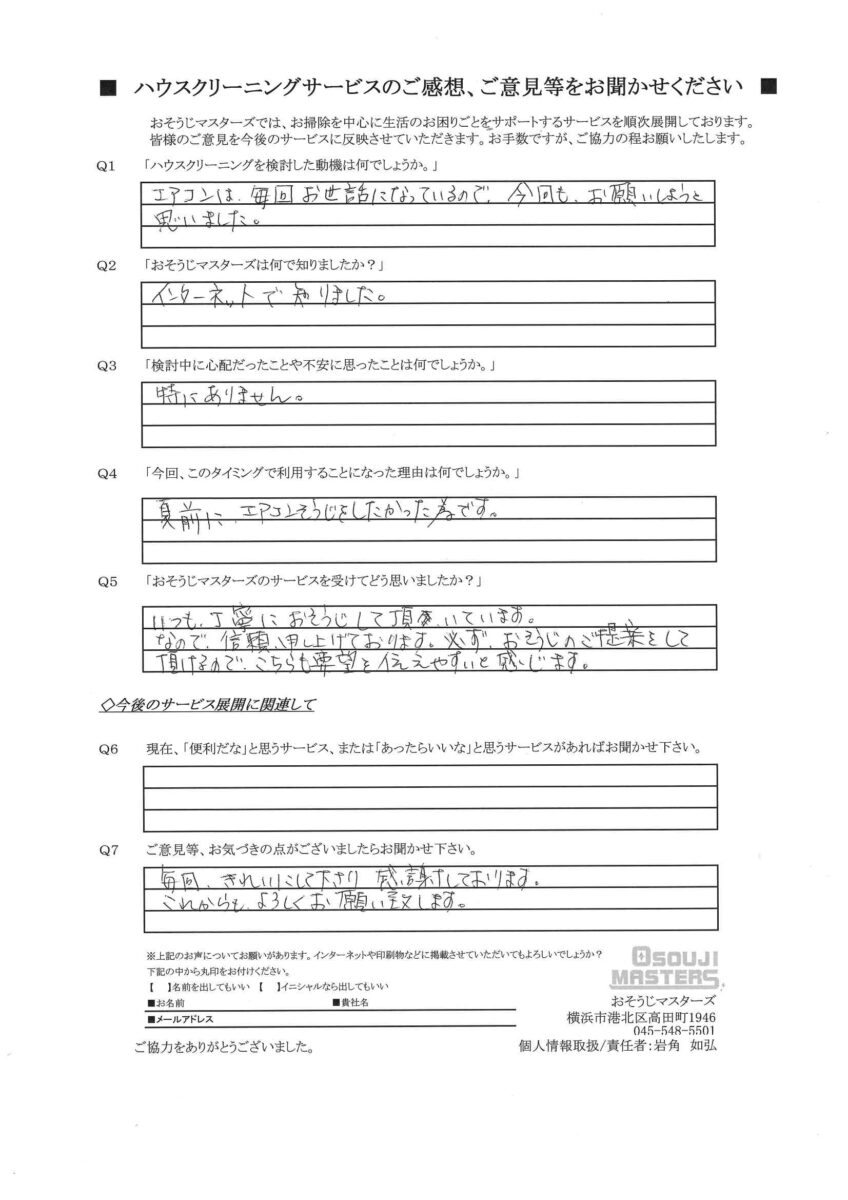 ■ ハウスクリーニングサービスのご感想、ご意見等をお聞かせください ■
おそうじマスターズでは、お掃除を中心に生活のお困りごとをサポートするサービスを順次展開しております。
皆様のご意見を今後のサービスに反映させていただきます。お手数ですが、ご協力の程お願いしたします。
Q1 「ハウスクリーニングを検討した動機は何でしょうか。」
エアコンは、毎回お世話になっているので、今回も、お願いしようと
思いました。
Q2 「おそうじマスターズは何で知りましたか？」
インターネットで知りました。
Q3 「検討中に心配だったことや不安に思ったことは何でしょうか。」
特にありません。
Q4 「今回、このタイミングで利用することになった理由は何でしょうか。」
夏前に、エアコンそうじをしたかった為です。
Q5 「おそうじマスターズのサービスを受けてどう思いましたか？」
いつも、丁寧におそうじして頂いています。
なので、信頼申し上げております。必ず、おそうじのご提案をして
頂けるので、こちらも要望を伝えやすいと感じます。
◇今後のサービス展開に関連して
Q6 現在、「便利だな」と思うサービス、または「あったらいいな」と思うサービスがあればお聞かせ下さい。
Q7 ご意見等、お気づきの点がございましたらお聞かせ下さい。
毎回、きれいにして下さり 感謝しております。
これからも、よろしくお願い致します。
※上記のお声についてお願いがあります。インターネットや印刷物などに掲載させていただいてもよろしいでしょうか？
下記の中から丸印をお付けください。
【 】名前を出してもいい 【 】イニシャルなら出してもいい
■お名前 ■貴社名
■メールアドレス
ご協力をありがとうございました。
OSOUJI
MASTERS
おそうじマスターズ
横浜市港北区高田町1946
045-548-5501
個人情報取扱/責任者:岩角 如弘